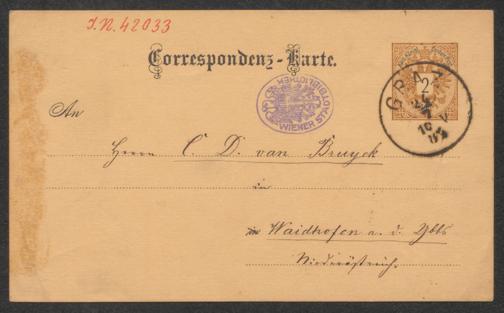 I.N. 42033
Correspondenz-Karte.
2
GRAZ
WIENER STADTBIBLIOTHEK
An
Herrn C. D. van Bruyck
in
in Waidhofen a. d. Ybbs
Niederöstreich.